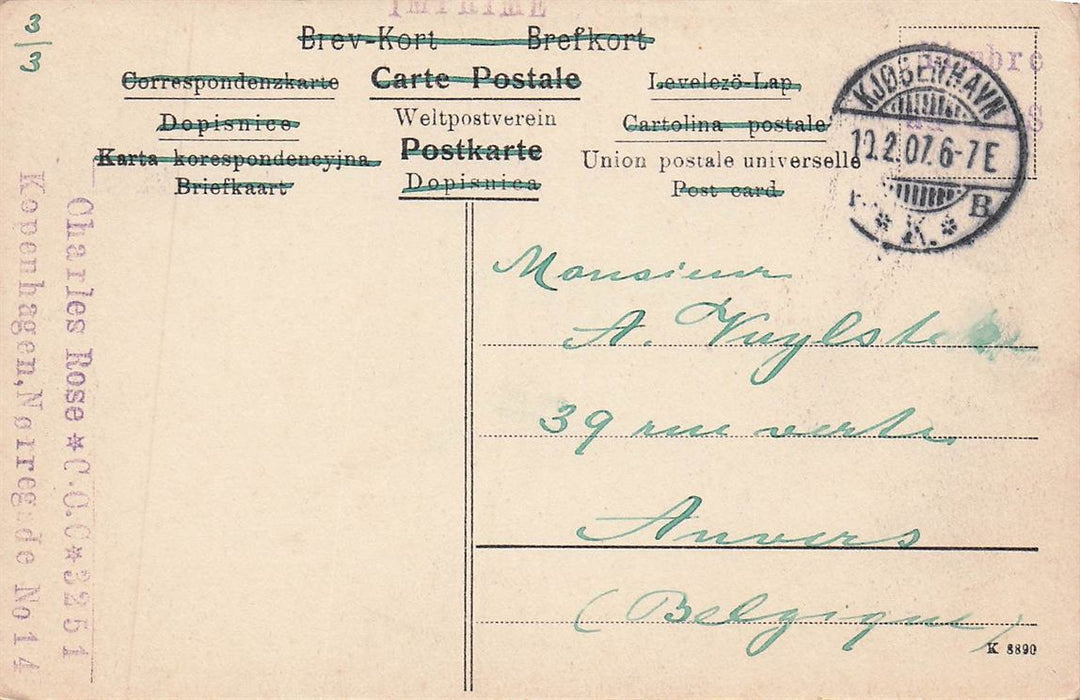 3/3
IMPRIMÉ
Brev-Kort — Brefkort
Correspondenzkarte Carte Postale Levelezö-Lap
Dopisnice Weltpostverein Cartolina postale
Karta korespondencyjna Postkarte Union postale universelle
Briefkaart Dopisnica Post card
Timbre
KJØBENHAVN
10.2.07. 6-7E
* K. * B.
Monsieur
A. Vuylste
39 rue verte
Anvers
(Belgique)
K 8890
Charles Rose ★ C.C.C ★ 3251
Kopenhagen, Nørregade No 14